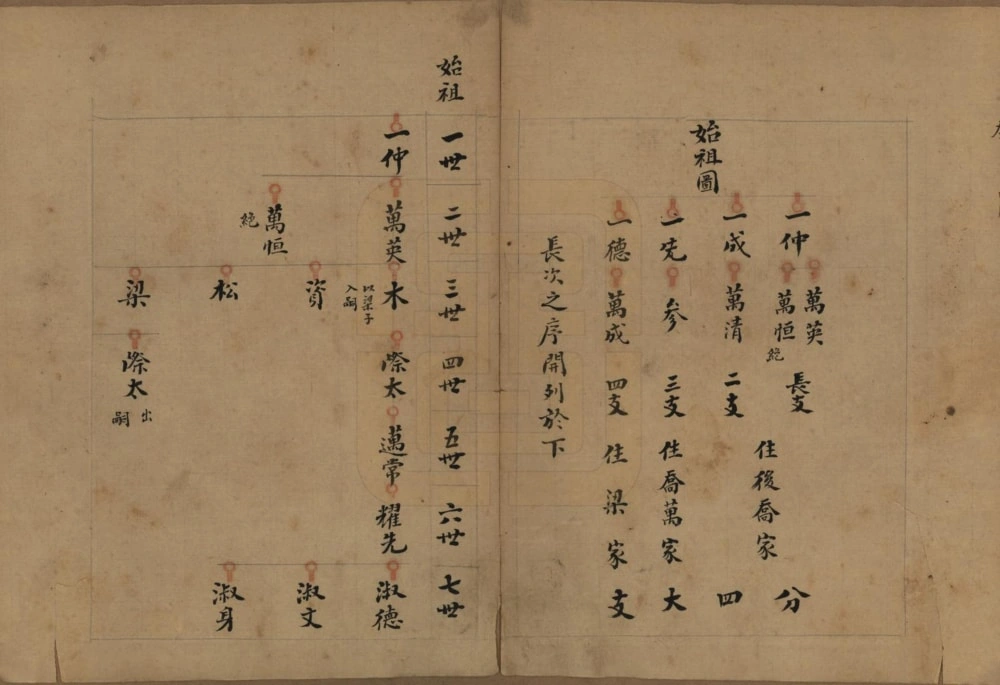 始祖圖
一仲 萬英 萬恒 絕 長支 住後喬家 分
一成 萬清 二支 四
一先 参 三支 住喬萬家 大
一德 萬成 四支 住梁家 支
長次之序開列於下
始祖 一世 二世 三世 四世 五世 六世 七世
一仲 萬英 木 以梁子入嗣 際太 邁常 耀先 淑德
資 淑文
萬恒 絕
松 淑身
梁 際太 出嗣